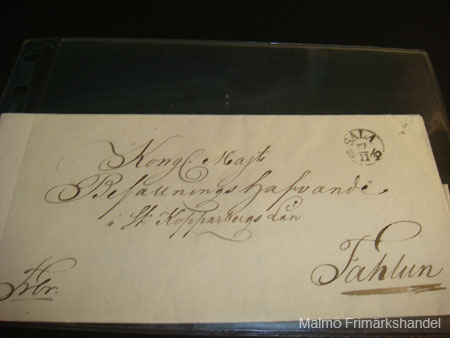 SALA
Kongl. Majts
Befallningshafvande
i St. Kopparbergs Län
Fahlun
Frbr.
Malmö Frimärkshandel